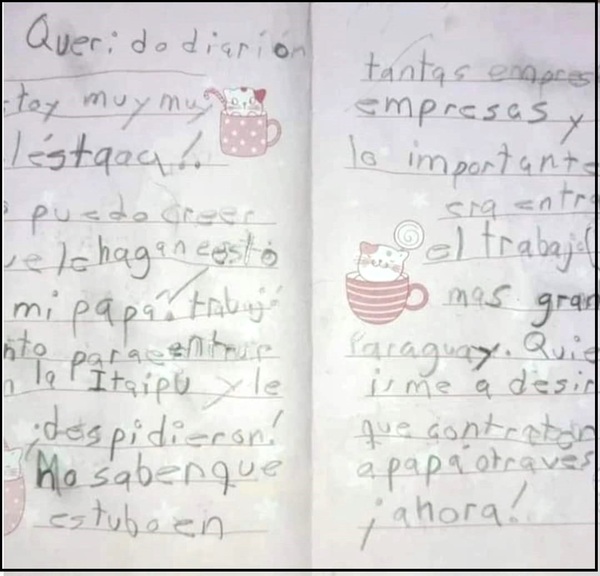 Querido diarión
toy muy mu
puedo creer
le hagan esto
mi papá! trabajó
nto para entrar
n la Itaipu y le
¡despidieron!
No saben que
estubo en
tantas empres
empresas y
lo important
era entr
el trabajo
mas gran
Paraguay. Quie
irme a desir
que contraten
a papá otraves
¡ahora!